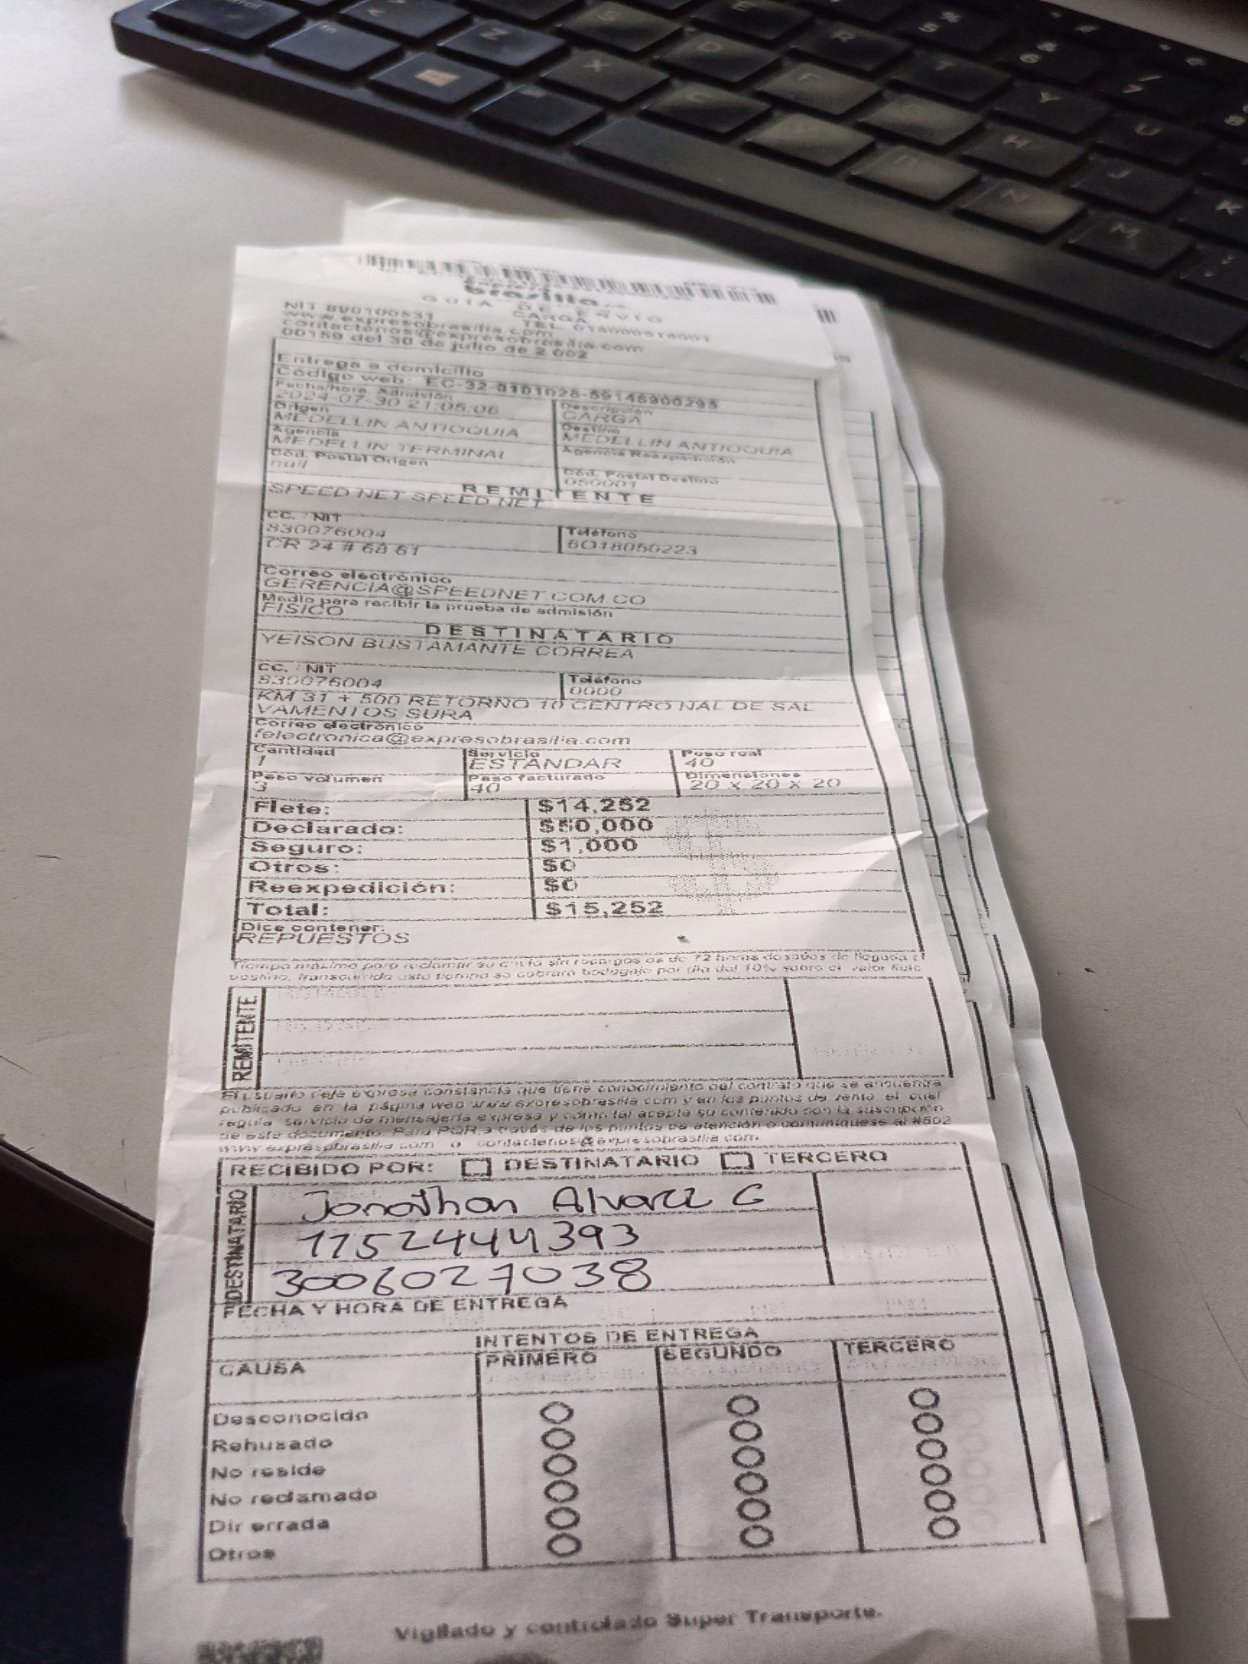 brasilia
GUIA DE ENVIO
CARGA
NIT 890100531
www.expresobrasilia.com
contactenos@expresobrasilia.com
00159 del 30 de julio de 2 002
Entrega a domicilio
Código web: EC-32-0101028-59146900295
Fecha/hora Admisión Descripción
2024-07-30 21:05:06 CARGA
Origen Destino
MEDELLIN ANTIOQUIA MEDELLIN ANTIOQUIA
Agencia Agencia Reexpedición
MEDELLIN TERMINAL
Cód. Postal Origen Cód. Postal Destino
null 050001
REMITENTE
SPEED NET SPEED NET
CC. / NIT Teléfono
830076004 6018050223
CR 24 # 68 61
Correo electrónico
GERENCIA@SPEEDNET.COM.CO
Medio para recibir la prueba de admisión
FISICO
DESTINATARIO
YEISON BUSTAMANTE CORREA
CC. / NIT Teléfono
830076004 0000
KM 31 + 500 RETORNO 10 CENTRO NAL DE SAL
VAMENTOS SURA
Correo electrónico
felectronica@expresobrasilia.com
Cantidad Servicio Peso real
1 ESTANDAR 40
Peso volumen Peso facturado Dimensiones
3 40 20 x 20 x 20
Flete: $14,252
Declarado: $50,000
Seguro: $1,000
Otros: $0
Reexpedición: $0
Total: $15,252
Dice contener:
REPUESTOS
Tiempo máximo para reclamar su envío sin recargos es de 72 horas después de llegada al
destino, transcurrido este tiempo se cobrara bodegaje por día del 10% sobre el valor flete
REMITENTE
El usuario deja expresa constancia que tiene conocimiento del contrato que se encuentra
publicado en la página web www.expresobrasilia.com y en los puntos de venta, el cual
regula servicio de mensajería expresa y como tal acepta su contenido con la suscripción
de este documento. Para PQR a través de los puntos de atención o comuníquese al #502
www.expresobrasilia.com o contactenos@expresobrasilia.com
RECIBIDO POR: DESTINATARIO TERCERO
DESTINATARIO
Jonathan Alvarez G
11524444393
3006027038
FECHA Y HORA DE ENTREGA
INTENTOS DE ENTREGA
CAUSA PRIMERO SEGUNDO TERCERO
Desconocido
Rehusado
No reside
No reclamado
Dir errada
Otros
Vigilado y controlado Super Transporte.